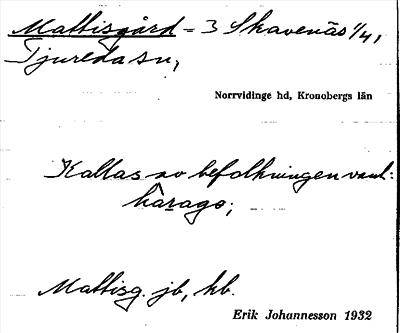 Mattisgård = 3 Skavenäs 1/4,
Tjureda sn,
Norrvidinge hd, Kronobergs län
Kallas av befolkningen vanl:
håragə;
Mattisg. jb, kb.
Erik Johannesson 1932